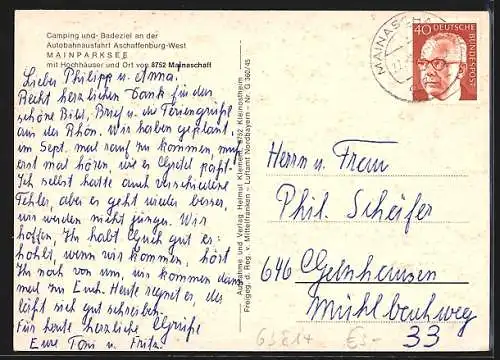 Camping und- Badeziel an der
Autobahnausfahrt Aschaffenburg-West
MAINPARKSEE
mit Hochhäuser und Ort von 8752 Mainaschaff
Lieber Philipp u. Anna.
Recht herzlichen Dank für das
schöne Bild, Brief u. die Feriengrüße
aus der Rhön. Wir haben geplant,
im Sept. mal rauf zu kommen, muß
erst mal hören, wie es Gretel paßt.
Ich selbst hatte auch verschiedene
Fehler, aber es geht wieder besser,
wir werden nicht jünger. Wir
hoffen, Ihr habt Euch gut er-
holt, wenn wir kommen, hört
Ihr noch von uns, wir kommen dann
mal zu Euch. Heute regnet es, da
läßt sich gut schreiben.
Für heute herzliche Grüße
Eure Toni u. Fritz.
Aufnahme und Verlag Helmut Klemens, 8752 Kleinostheim
Freigeg. d. Reg. v. Mittelfranken - Luftamt Nordbayern - Nr. G 360/45
MAINASCHAFF
40 DEUTSCHE BUNDESPOST
Herrn u. Frau
Phil. Schäfer
646 Gelnhausen
Mühlbachweg
33
€3-